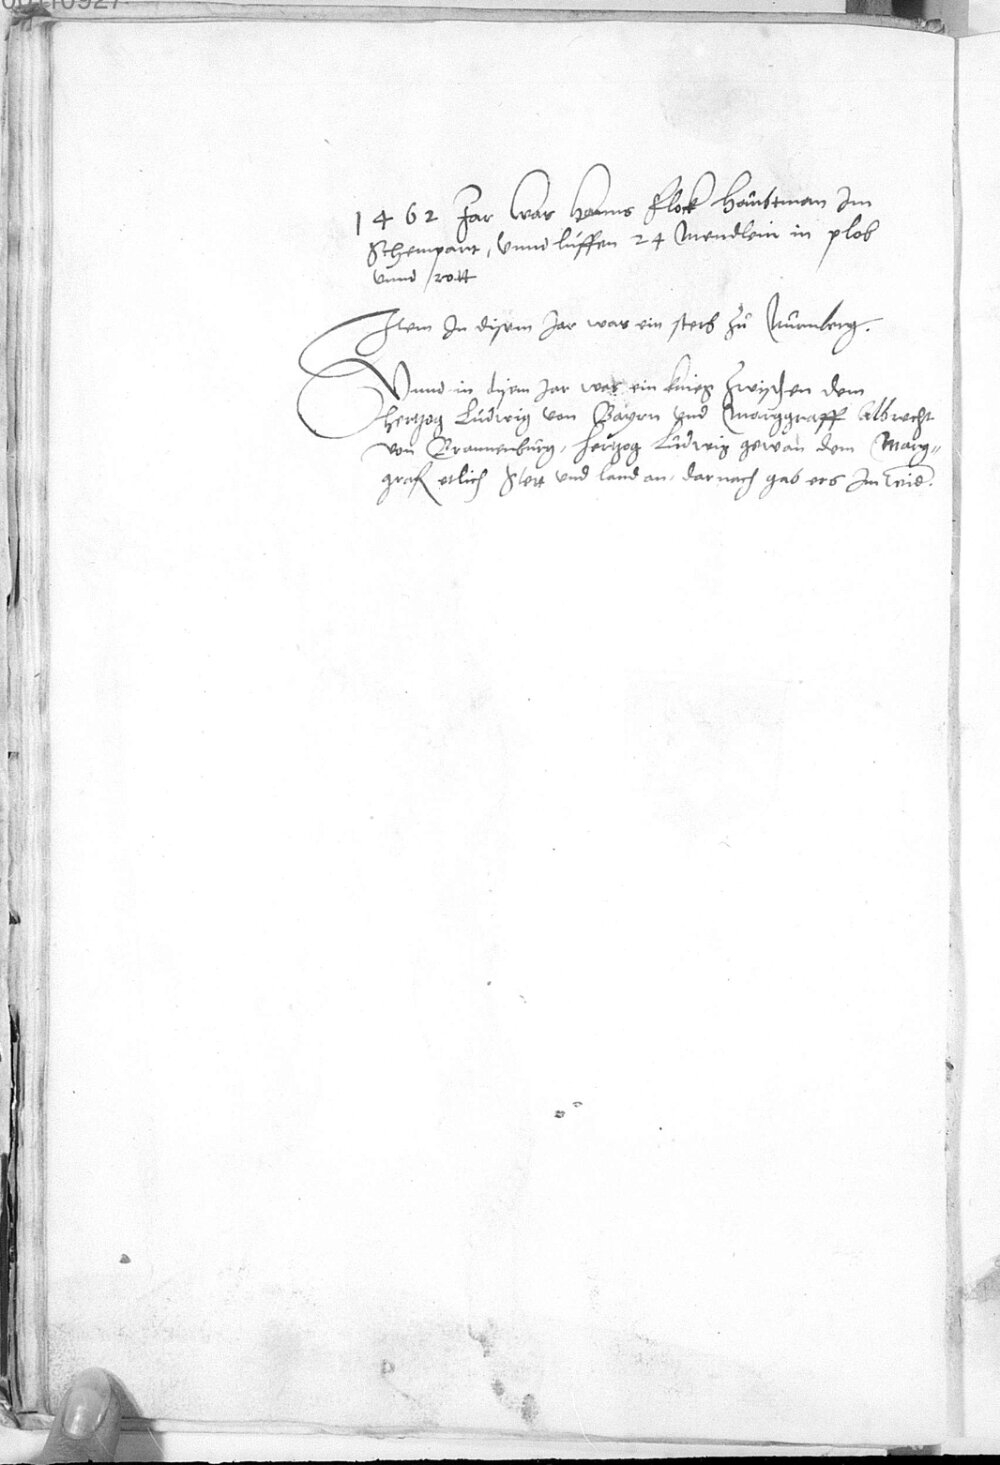 1462 Jar war hanns flock haubtman Im
Schempart, vnnd luffen 24 Mendlein in plob
vnnd rott
Item In disem Jar war ein sterb zu Nurmberg.
Vnnd in disem Jar war ein krieg zwischen dem
hertzog Ludwig von Bayrn vnd Marggraff Albrecht
von Brannenburg, hertzog Ludwig gewan dem Marg=
graf etlich Stett vnd land an, darnach gab ers Im wid.